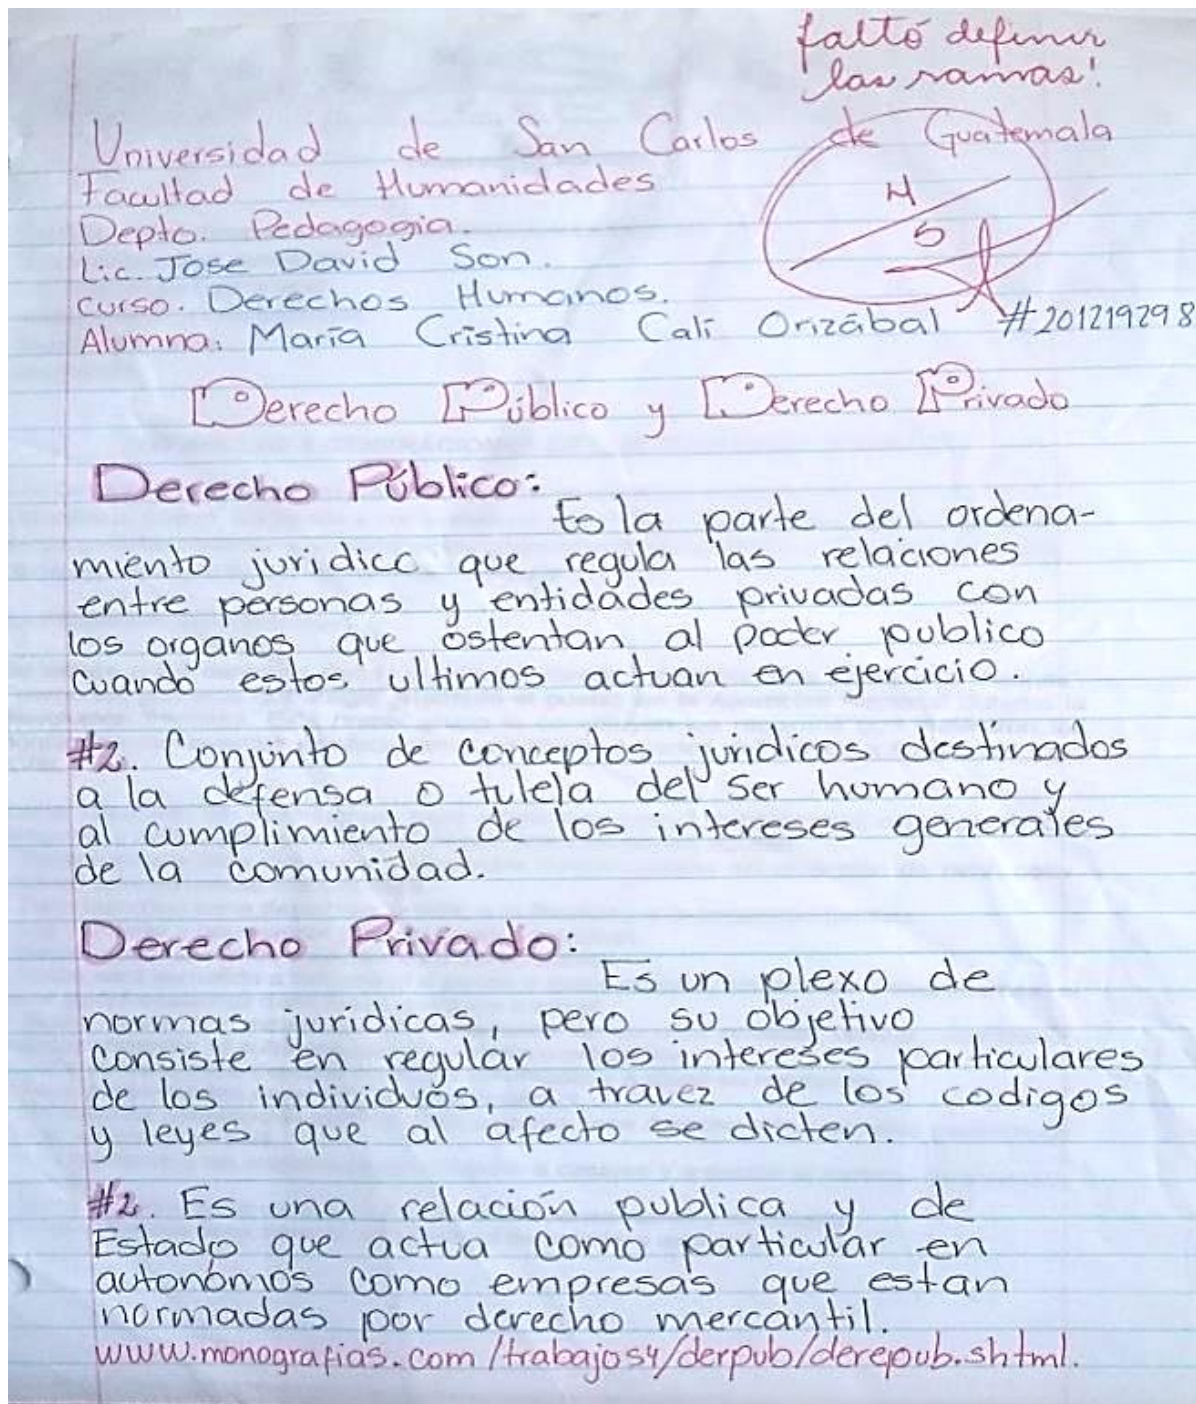 faltó definir
las ramas!
Universidad de San Carlos de Guatemala
Facultad de Humanidades
Depto. Pedagogia.
Lic. Jose David Son.
curso. Derechos Humanos.
Alumna: María Cristina Calí Orizábal #201219298
4
5
Derecho Público y Derecho Privado
Derecho Público:
Es la parte del ordena-
miento juridico que regula las relaciones
entre personas y entidades privadas con
los organos que ostentan al poder publico
cuando estos ultimos actuan en ejercicio.
#2. Conjunto de conceptos juridicos destinados
a la defensa o tulela del ser humano y
al cumplimiento de los intereses generales
de la comunidad.
Derecho Privado:
Es un plexo de
normas juridicas, pero su objetivo
consiste en regular los intereses particulares
de los individuos, a travez de los codigos
y leyes que al afecto se dicten.
#2. Es una relación publica y de
Estado que actua como particular en
autonómos como empresas que estan
normadas por derecho mercantil.
www.monografias.com/trabajos4/derpub/derepub.shtml.